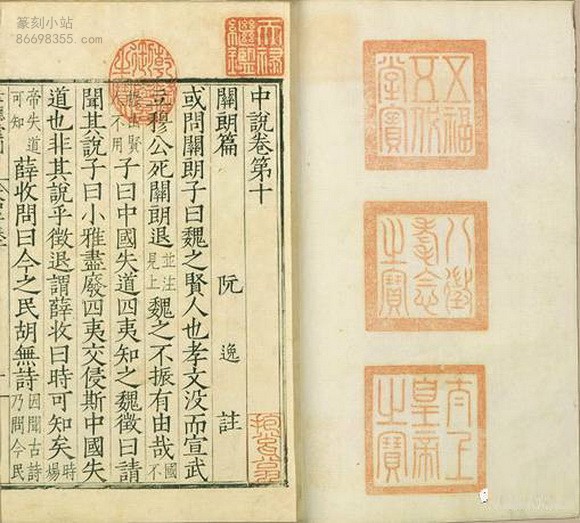 篆刻小站
86698355.com
五福五代堂寶
八徵耄念之寶
太上皇帝之寶
天祿繼鑑
乾隆御覽之寶
中說卷第十
關朗篇 阮逸註
或問關朗子曰魏之賢人也孝文没而宣武
立穆公死關朗退並注見上魏之不振有由哉國不
振由賢不用子曰中國失道四夷知之魏徵曰請
聞其說子曰小雅盡廢四夷交侵斯中國失
道也非其說乎徵退謂薛收曰時可知矣時煬
帝失道可知薛收問曰今之民胡無詩因聞古詩乃問今民